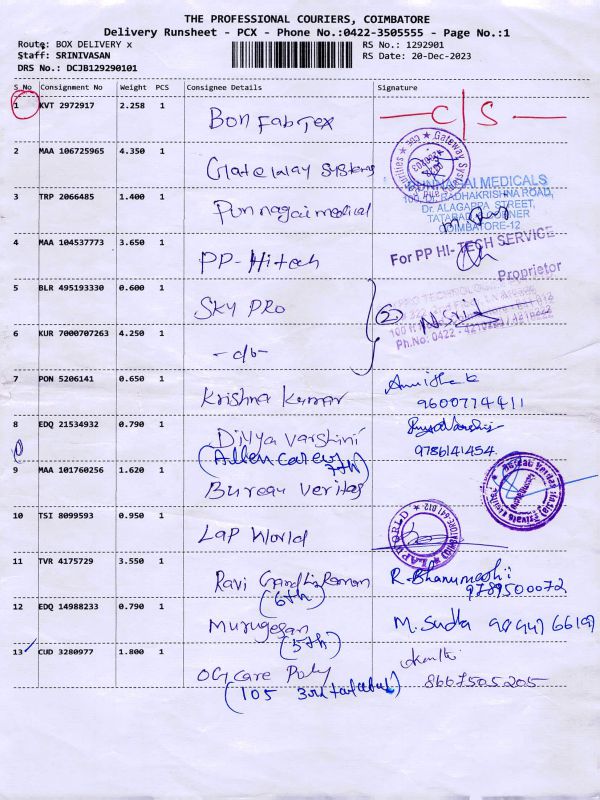 THE PROFESSIONAL COURIERS, COIMBATORE
Delivery Runsheet - PCX - Phone No.:0422-3505555 - Page No.:1
Route: BOX DELIVERY x
RS No.: 1292901
Staff: SRINIVASAN
RS Date: 20-Dec-2023
DRS No.: DCJB129290101
S_No Consignment No Weight PCS Consignee Details Signature
1 KVT 2972917 2.258 1 Bon Fabtex C/S
2 MAA 106725965 4.350 1 Gateway Systems
3 TRP 2066485 1.400 1 Punnagai medical
PUNNAGAI MEDICALS
100, Dr. RADHAKRISHNA ROAD,
Dr. ALAGAPPA STREET,
TATABAD CORNER
COIMBATORE-12
4 MAA 104537773 3.650 1 PP-Hitech
For PP HI-TECH SERVICE
Proprietor
5 BLR 495193330 0.600 1 SKY PRO
2
6 KUR 7000707263 4.250 1 -do-
7 PON 5206141 0.650 1 Krishna Kumar
9600774411
8 EDQ 21534932 0.790 1 Divya Varshini
(Allen career 7th)
9786141454
9 MAA 101760256 1.620 1 Bureau Veritas
10 TSI 8099593 0.950 1 Lap World
11 TVR 4175729 3.550 1 Ravi Gandhi Raman R. Bhanumathi
(6th) 9789500072
12 EDQ 14988233 0.790 1 Murugesan M. Sudha
(5th)
13 CUD 3280977 1.800 1 OG care Poly
(105 3rd tatabad) 8667505205